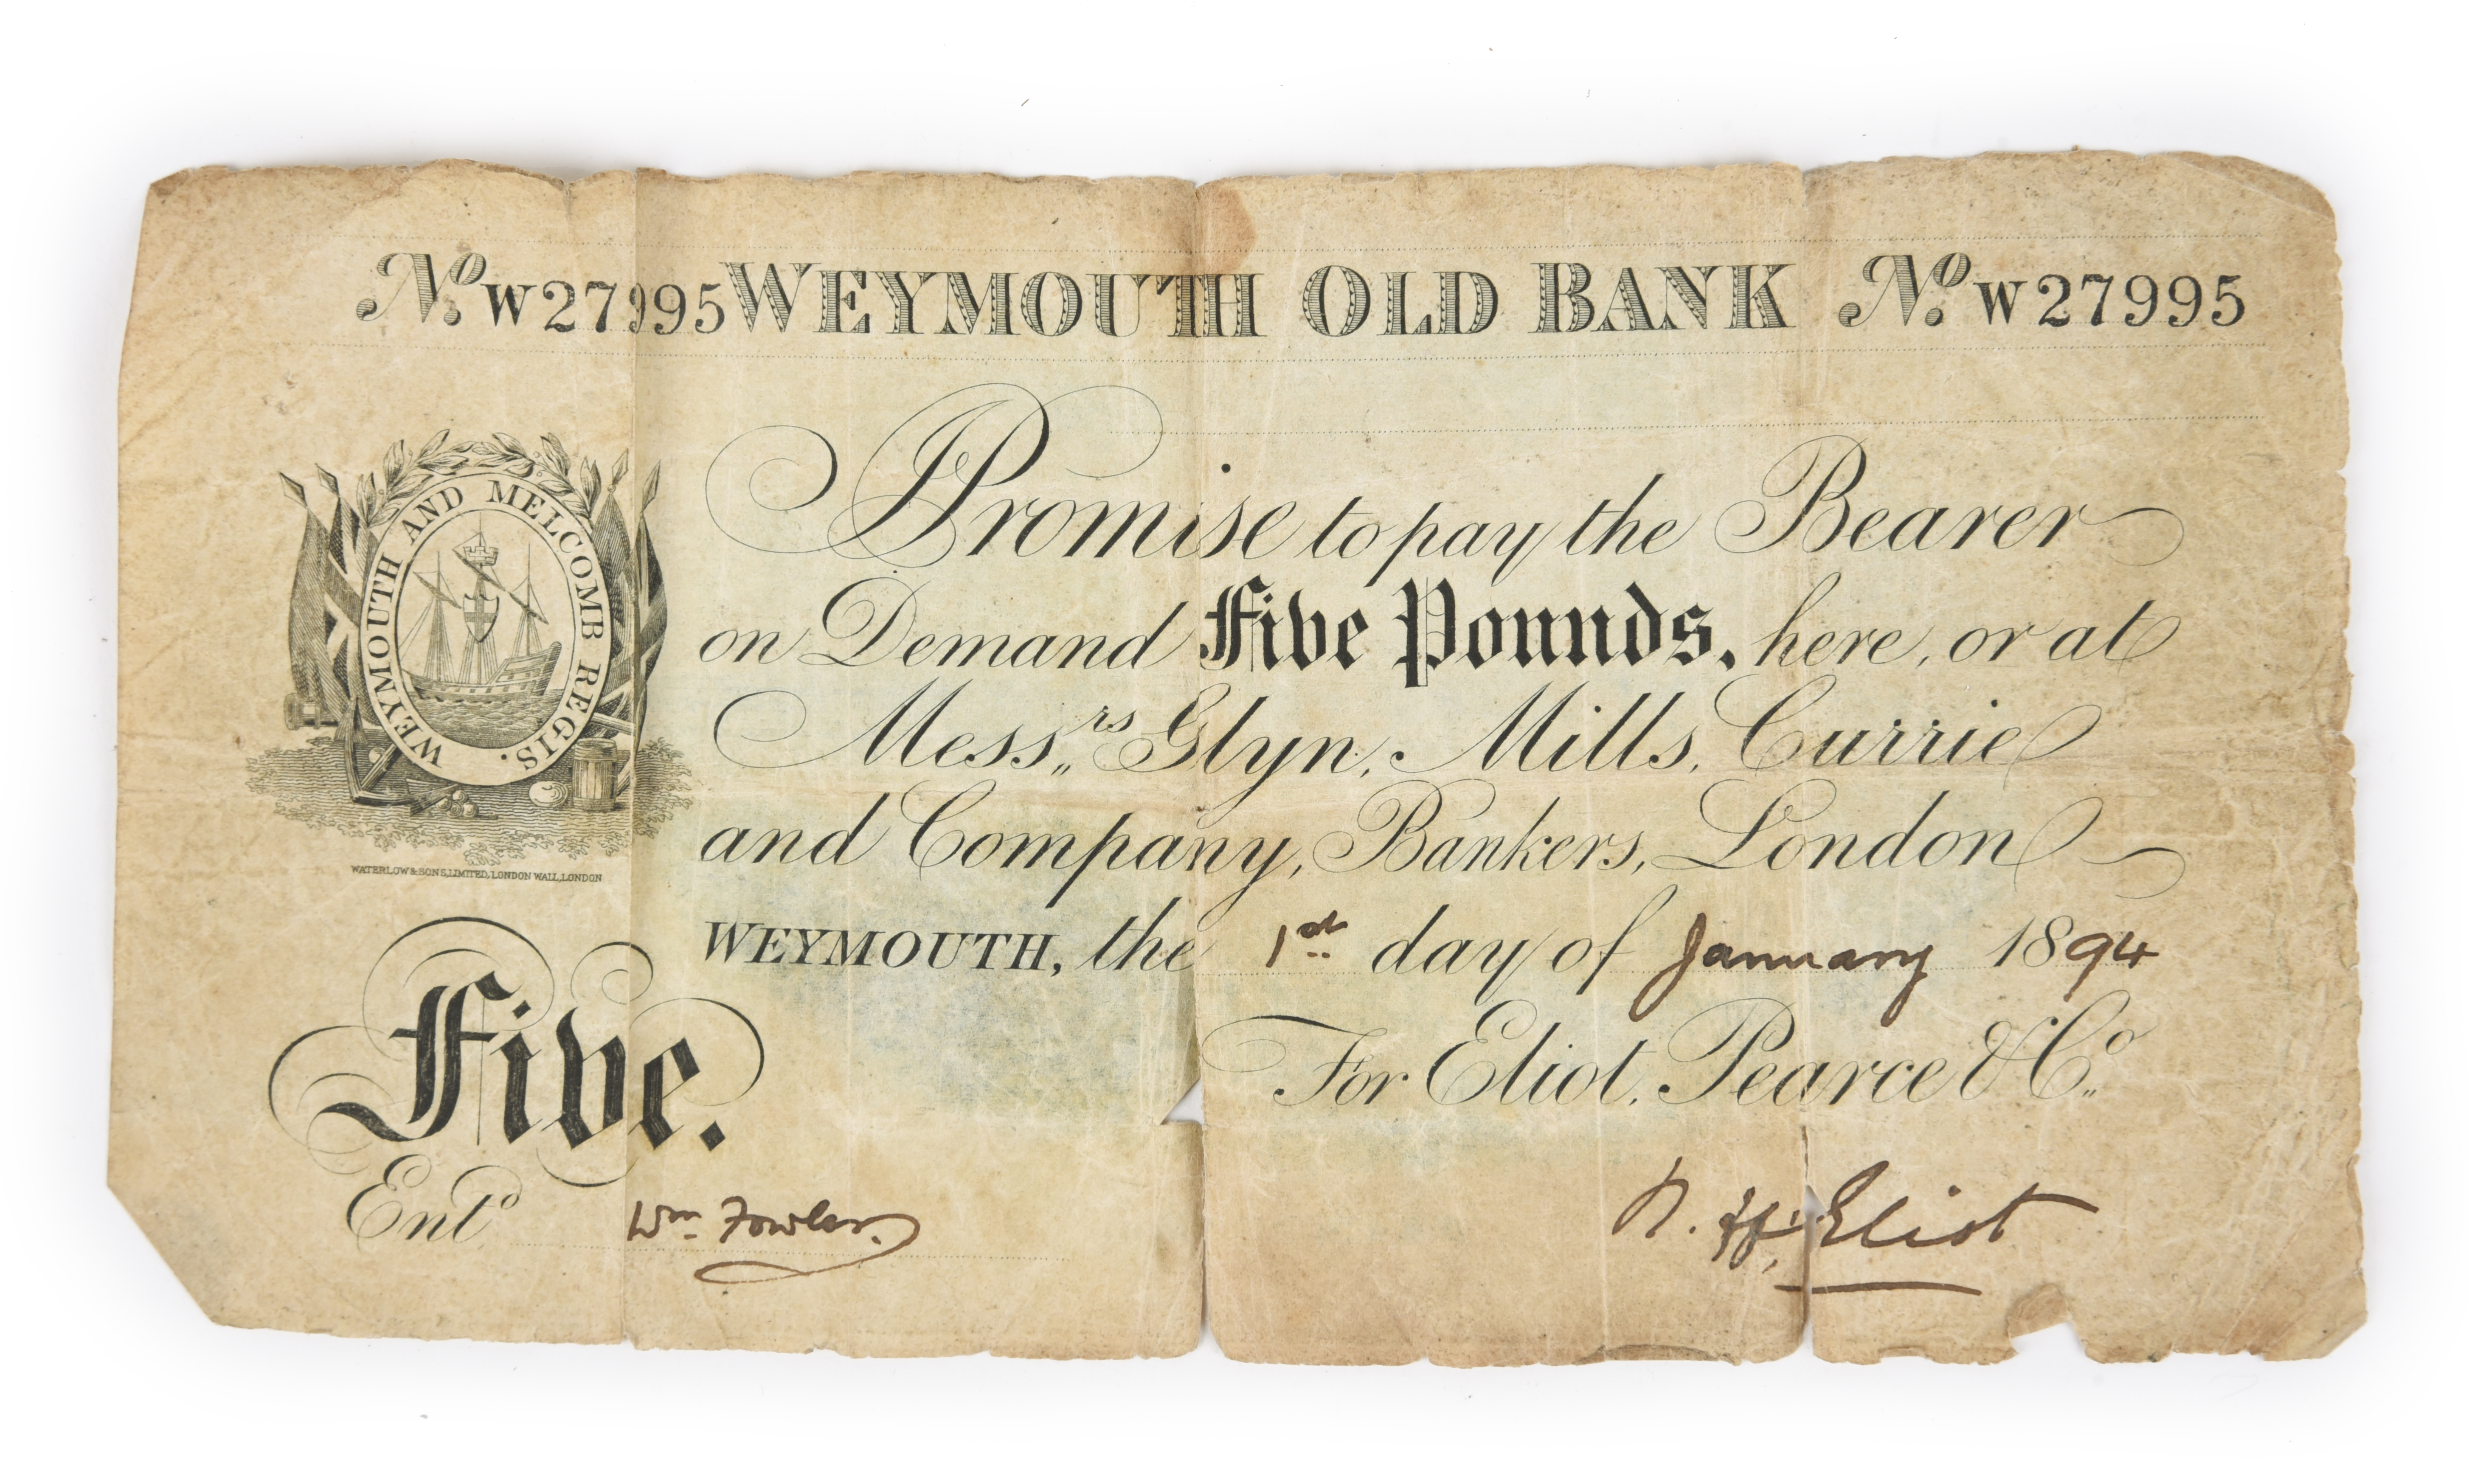 No. W27995 WEYMOUTH OLD BANK No. W27995
WEYMOUTH AND MELCOMB REGIS.
I Promise to pay the Bearer
on Demand Five Pounds, here, or at
Messrs Glyn, Mills, Currie
and Company, Bankers, London
WATERLOW & SONS, LIMITED, LONDON WALL, LONDON
WEYMOUTH, the 1st day of January 1894
For Eliot, Pearce & Co
Five.
Entd Wm. Fowler.
Eliot